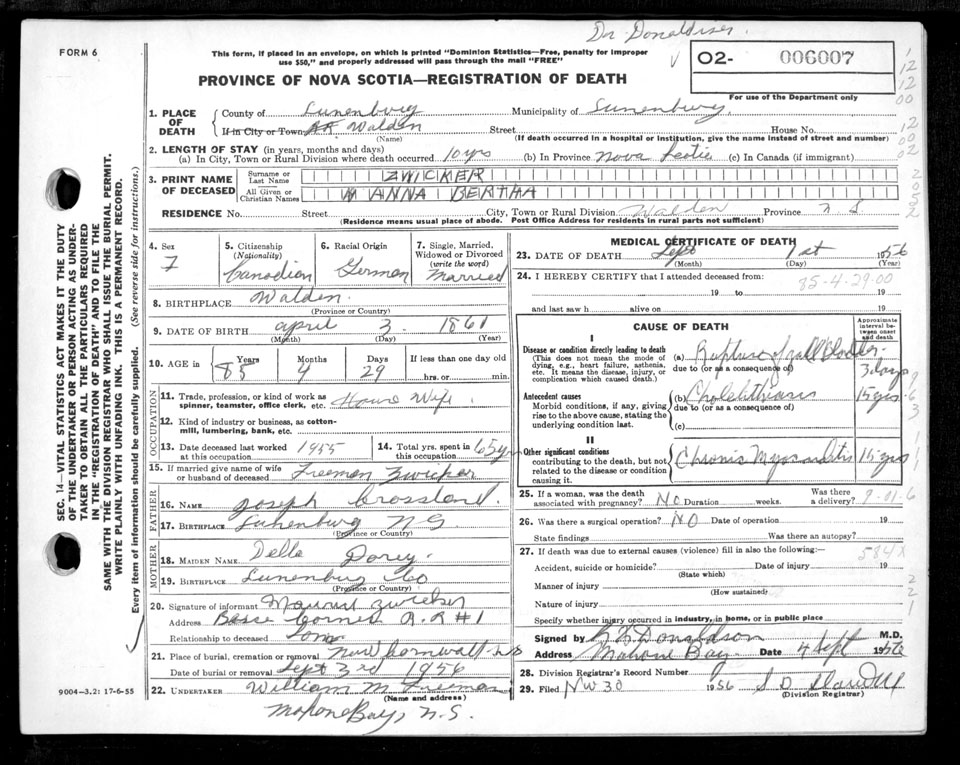 Dr. Donaldson
FORM 6
This form, if placed in an envelope, on which is printed "Dominion Statistics—Free, penalty for improper
use $50," and properly addressed will pass through the mail "FREE"
PROVINCE OF NOVA SCOTIA—REGISTRATION OF DEATH
O2- 006007
For use of the Department only
1. PLACE OF DEATH
County of Lunenburg Municipality of Lunenburg
If in City or Town RR Walden Street House No.
(Name) (If death occurred in a hospital or institution, give the name instead of street and number)
2. LENGTH OF STAY (in years, months and days)
(a) In City, Town or Rural Division where death occurred 10 yrs (b) In Province Nova Scotia (c) In Canada (if immigrant)
3. PRINT NAME OF DECEASED
Surname or Last Name ZWICKER
All Given or Christian Names M ANNA BERTHA
RESIDENCE No. Street City, Town or Rural Division Walden Province N S
(Residence means usual place of abode. Post Office Address for residents in rural parts not sufficient)
4. Sex 7
5. Citizenship (Nationality) Canadian
6. Racial Origin German
7. Single, Married, Widowed or Divorced (write the word) Married
8. BIRTHPLACE Walden
(Province or Country)
9. DATE OF BIRTH April 3 1861
(Month) (Day) (Year)
10. AGE in 85 Years 4 Months 29 Days If less than one day old
hrs. or min.
OCCUPATION
11. Trade, profession, or kind of work as spinner, teamster, office clerk, etc. House Wife
12. Kind of industry or business, as cotton-mill, lumbering, bank, etc.
13. Date deceased last worked at this occupation 1955
14. Total yrs. spent in this occupation 65 yrs
15. If married give name of wife or husband of deceased Freeman Zwicker
FATHER
16. NAME Joseph Crossland
17. BIRTHPLACE Lunenburg N S
(Province or Country)
MOTHER
18. MAIDEN NAME Della Dorey
19. BIRTHPLACE Lunenburg Co
(Province or Country)
20. Signature of informant Zwicker
Address Corner R.R #1
Relationship to deceased Son
21. Place of burial, cremation or removal New Cornwall N S
Date of burial or removal Sept 3rd 1956
22. UNDERTAKER William M
(Name and address)
Mahone Bay, N.S.
MEDICAL CERTIFICATE OF DEATH
23. DATE OF DEATH Sept 1st 1956
(Month) (Day) (Year)
24. I HEREBY CERTIFY that I attended deceased from:
85-4-29-00
19 to 19
and last saw h alive on 19
CAUSE OF DEATH
Approximate interval between onset and death
I
Disease or condition directly leading to death
(This does not mean the mode of dying, e.g., heart failure, asthenia, etc. It means the disease, injury, or complication which caused death.)
(a) Rupture of gall bladder 3 days
due to (or as a consequence of)
Antecedent causes
Morbid conditions, if any, giving rise to the above cause, stating the underlying condition last.
(b) Cholelithiasis 15 yrs
due to (or as a consequence of)
(c)
II
Other significant conditions
contributing to the death, but not related to the disease or condition causing it.
Chronic Myocarditis 15 yrs
25. If a woman, was the death associated with pregnancy? NO Duration weeks. Was there a delivery?
26. Was there a surgical operation? NO Date of operation 19
State findings Was there an autopsy?
27. If death was due to external causes (violence) fill in also the following:—
584X
Accident, suicide or homicide? Date of injury 19
(State which)
Manner of injury
(How sustained)
Nature of injury
Specify whether injury occurred in industry, in home, or in public place
Signed by Donaldson M.D.
Address Mahone Bay Date 4 Sept 1956
28. Division Registrar's Record Number 9
29. Filed 30 1956
(Division Registrar)
SEC. 14—VITAL STATISTICS ACT MAKES IT THE DUTY
OF THE UNDERTAKER OR PERSON ACTING AS UNDER-
TAKER TO OBTAIN ALL THE PARTICULARS REQUIRED
IN THE "REGISTRATION OF DEATH" AND TO FILE THE
SAME WITH THE DIVISION REGISTRAR WHO SHALL ISSUE THE BURIAL PERMIT.
WRITE PLAINLY WITH UNFADING INK. THIS IS A PERMANENT RECORD.
Every item of information should be carefully supplied. (See reverse side for instructions.)
9004-3.2: 17-6-55